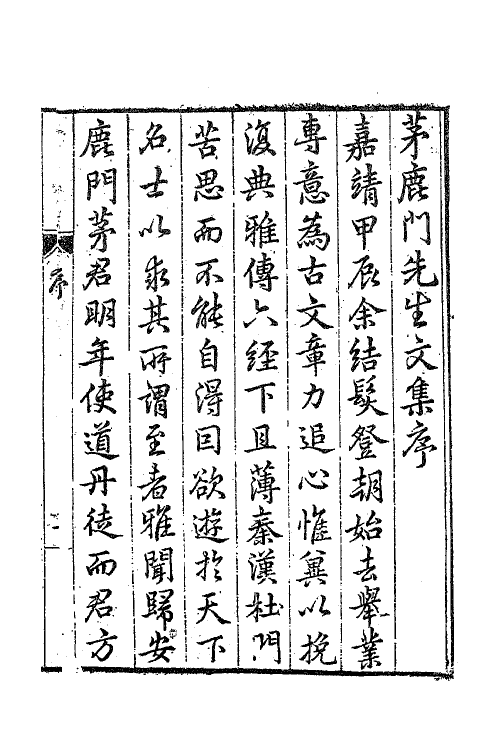 茅鹿門先生文集序
嘉靖甲辰余結髮登朝始去舉業
專意為古文章力追心惟冀以挽
復典雅傳六經下且薄秦漢杜門
苦思而不能自得曰欲遊於天下
名士以求其所謂至者雅聞歸安
鹿門茅君明年使道丹徒而君方
序
一